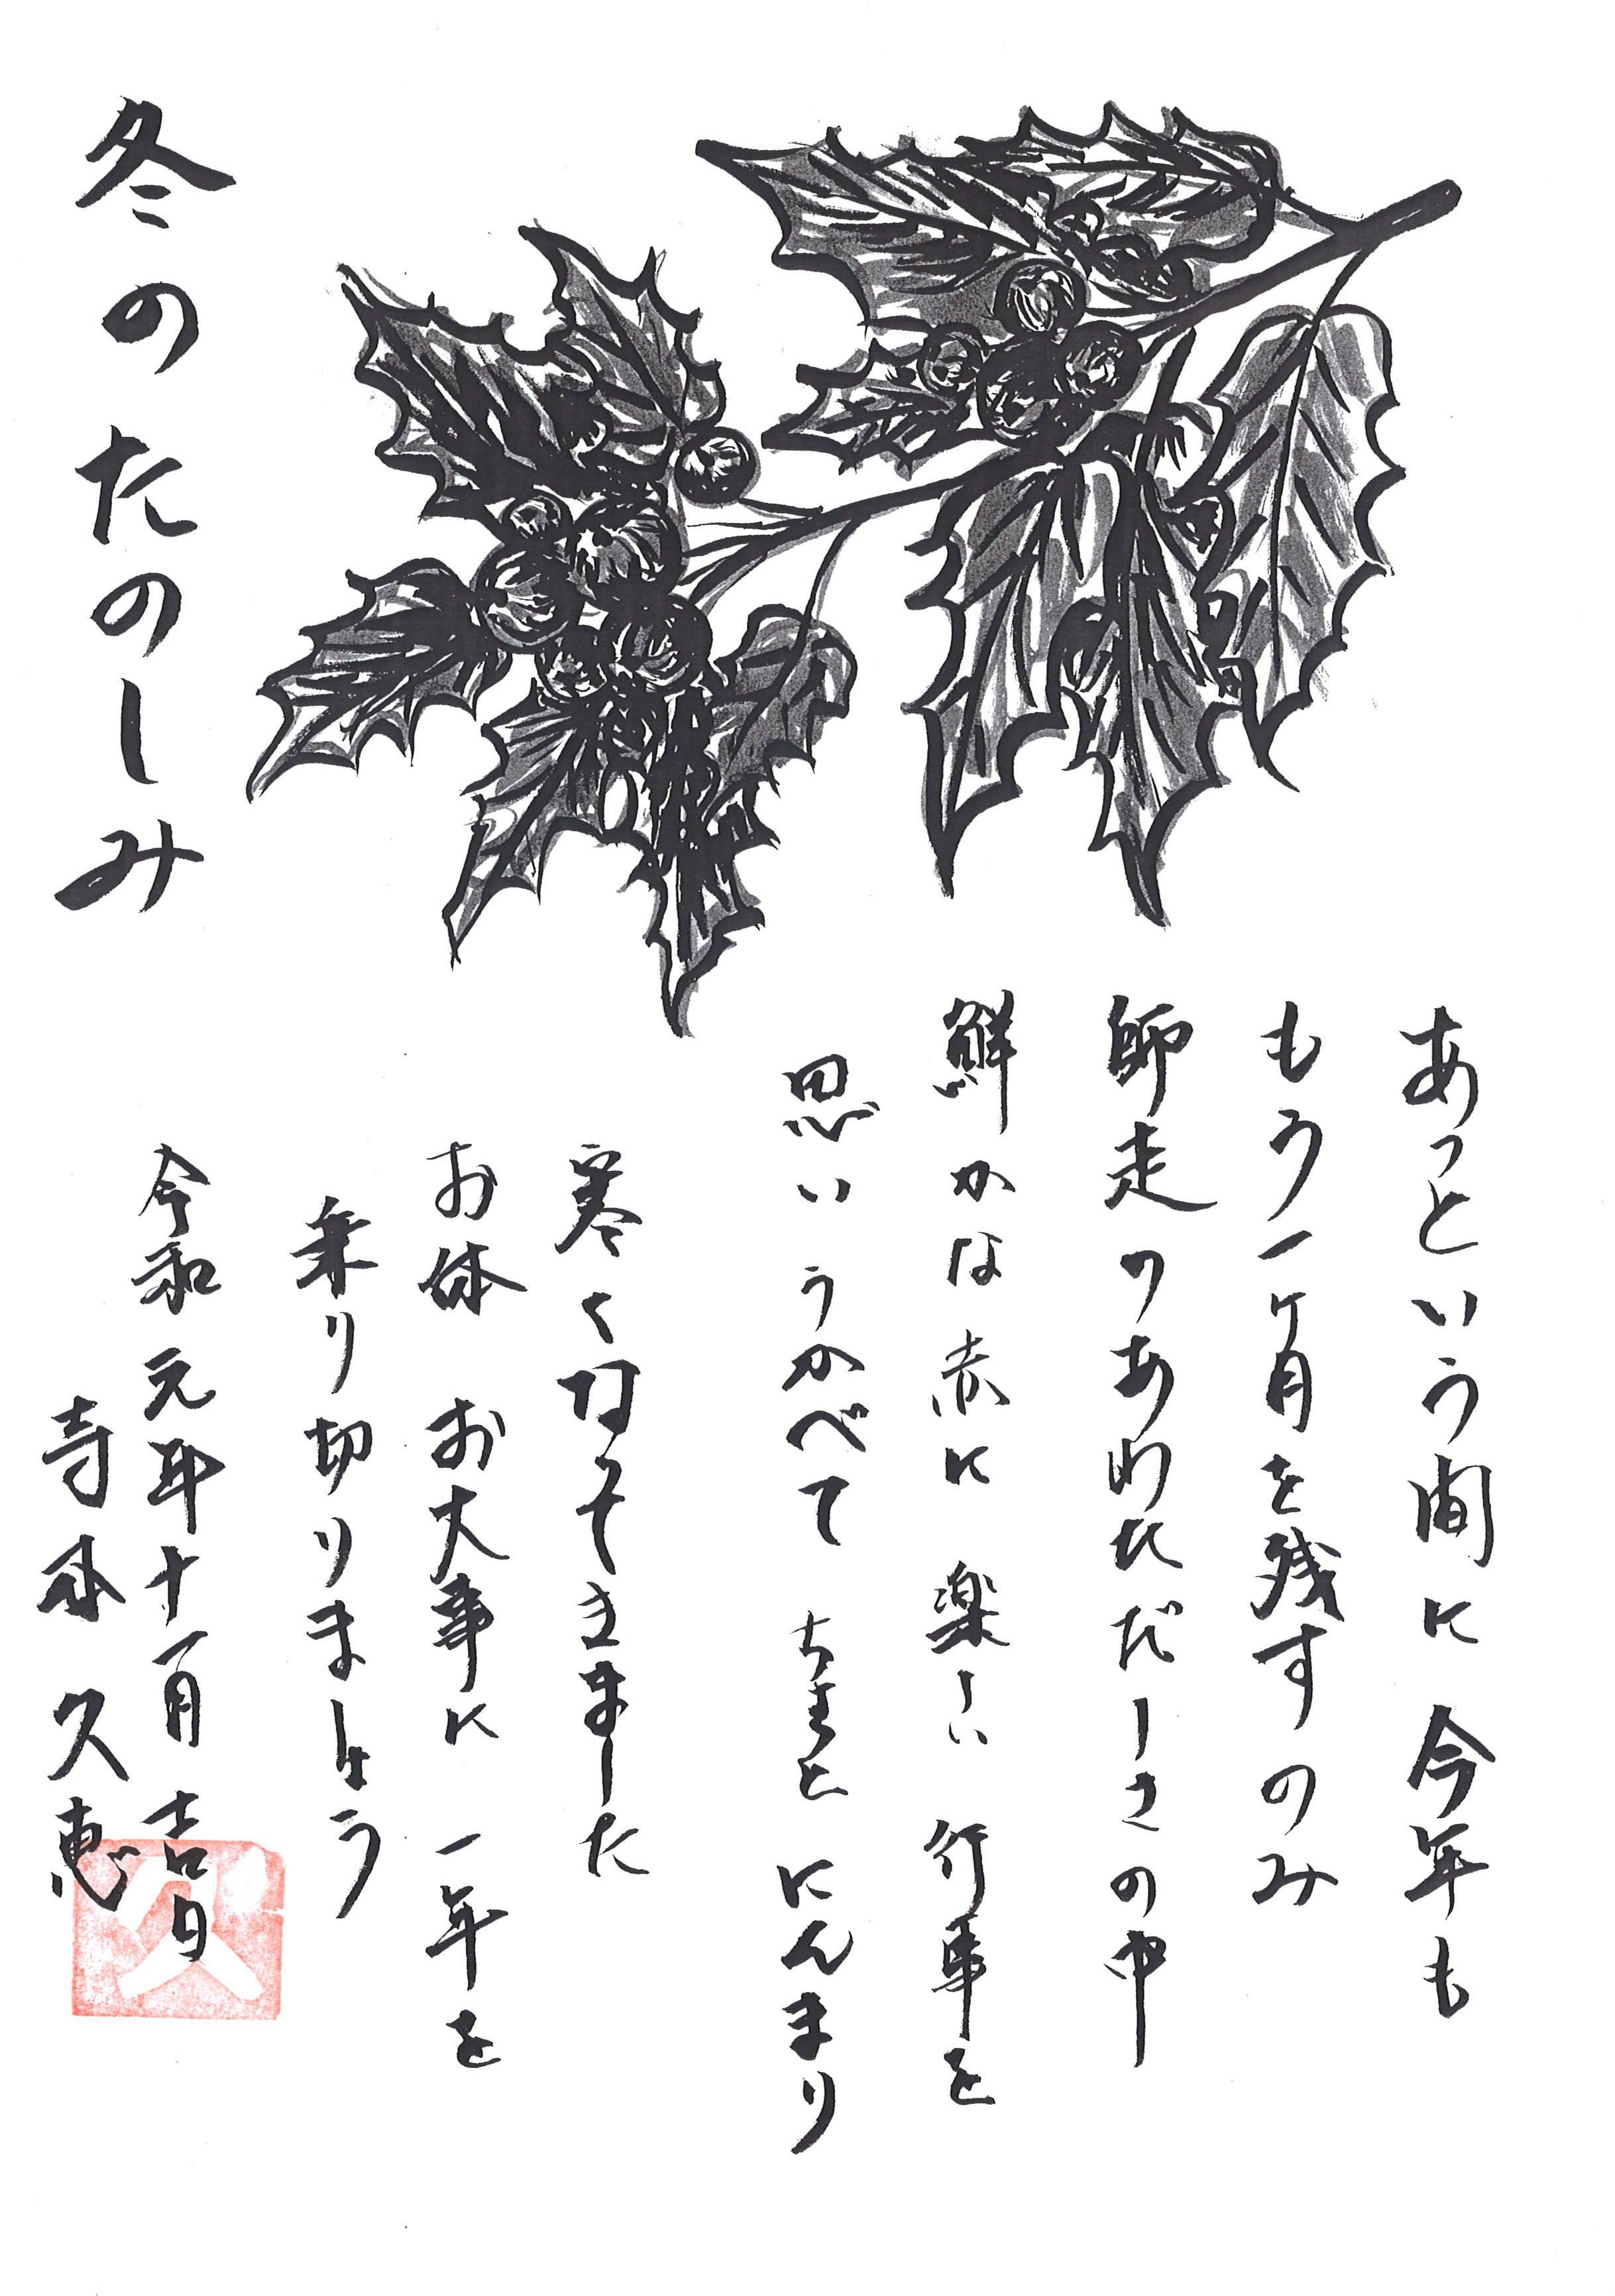 あっという間に 今年も
もう一ヶ月を残すのみ
師走のあわただしさの中
鮮かな赤に 楽しい 行事を
思いうかべて ちょっと にんまり
寒くなってきました
お体 お大事に 一年を
乗り切りましょう
令和元年十一月吉日
寺本久恵
久
冬のたのしみ